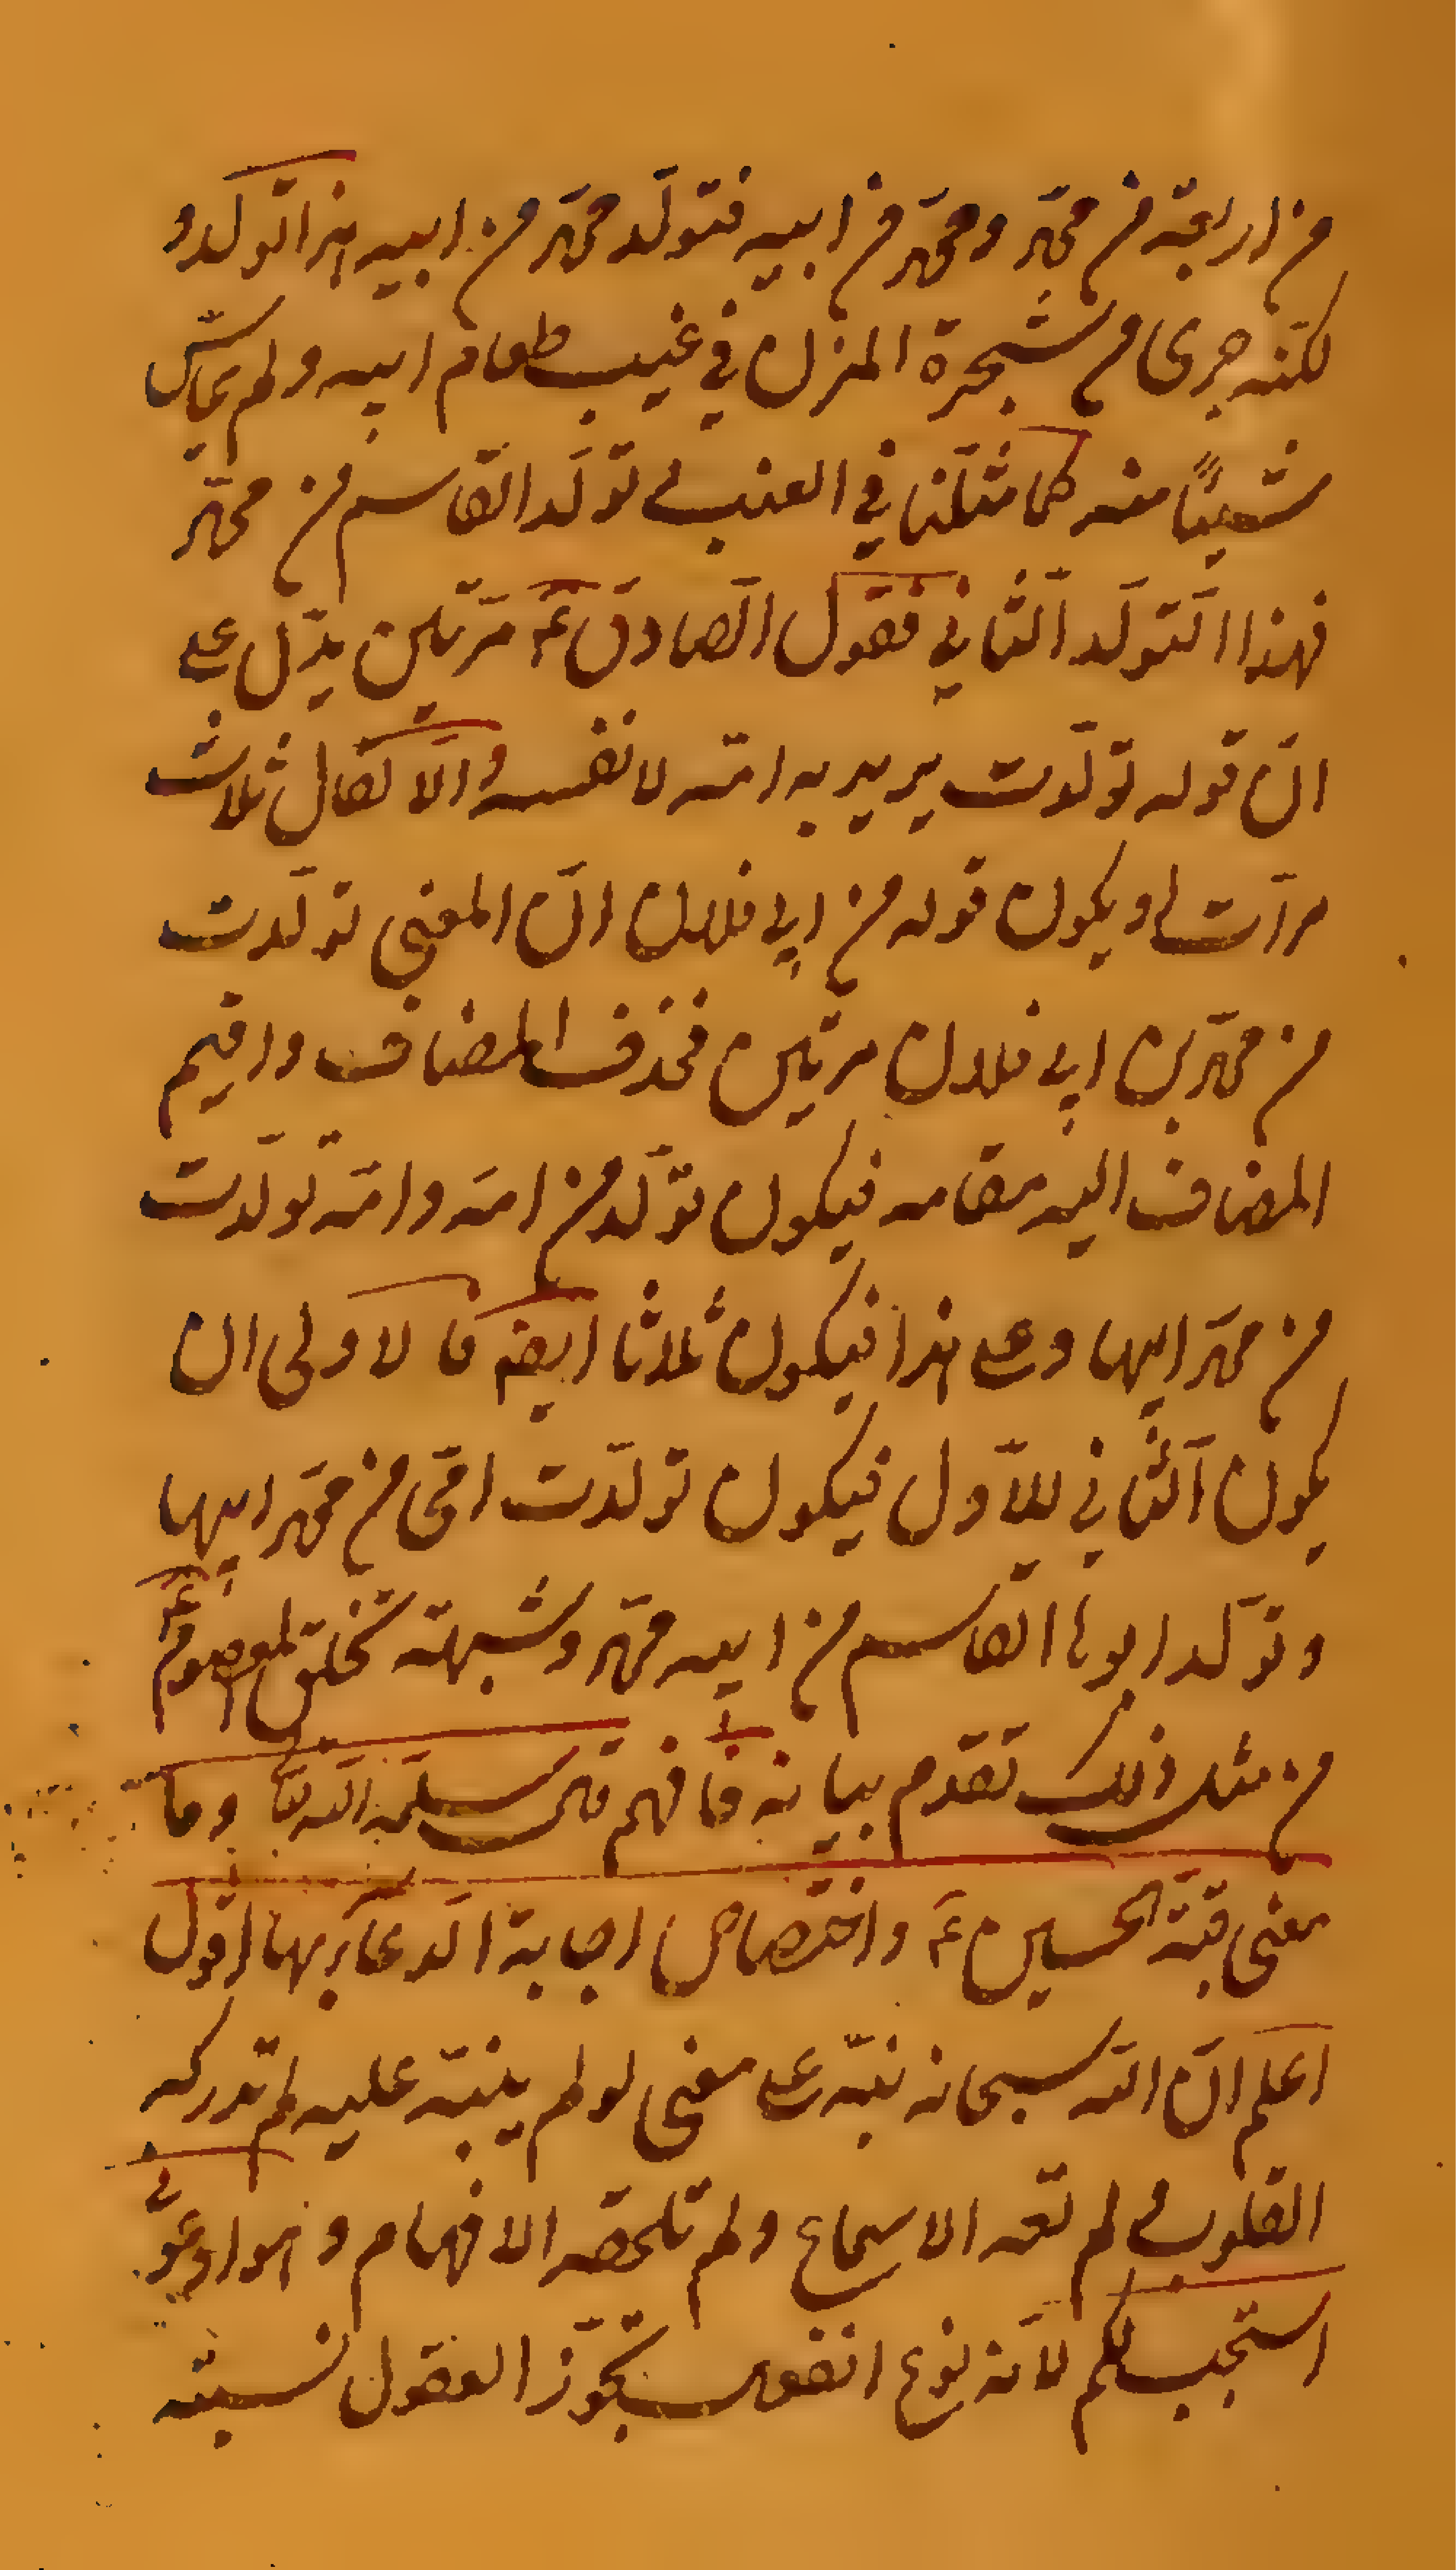 من اربعة من محمّد ومحمّد من ابيه فتولّد محمّد من ابيه هذا تولّد و
لكنه جرى من شجرة المزن في غيب طعام ابيه ولم يماسّ
شيئًا منه كما مثّلنا في العنب تولّد القاسم من محمّد
فهذا التولّد الثاني فقول الصادق ع مرّتين يدّل على
انّ قوله تولّدت يريد به امّه لا نفسه والّا لقال ثلاث
مرّات ويكون قوله من ابي فلان انّ المعنى تولّدت
من محمّد بن ابي فلان مرتين فحذف المضاف واقيم
المضاف اليه مقامه فيكون تولّد من امّه وامّه تولّدت
من محمّد ابيها وعلى هذا فيكون ثلاثا ايضا فالاولى ان
يكون الثّاني للاّول فيكون تولّدت امّي من محمّد ابيها
وتولّد ابوها القاسم من ابيه محمّد وشبهته تخلق المعصوم ع
من مثل ذلك تقدم بيانه فافهم قال سلّمه الله تعالى وما
معنى قبّة الحسين ع واختصاص اجابة الدعاء بها اقول
اعلم انّ الله سبحانه نبّه على معنى لو لم ينبّه عليه لم تدركه
القلوب لم تعه الاسماع ولم تلحقه الافهام وهو ادعوني
استجب لكم لانه نوع انفعال تجوّز العقول نسبته